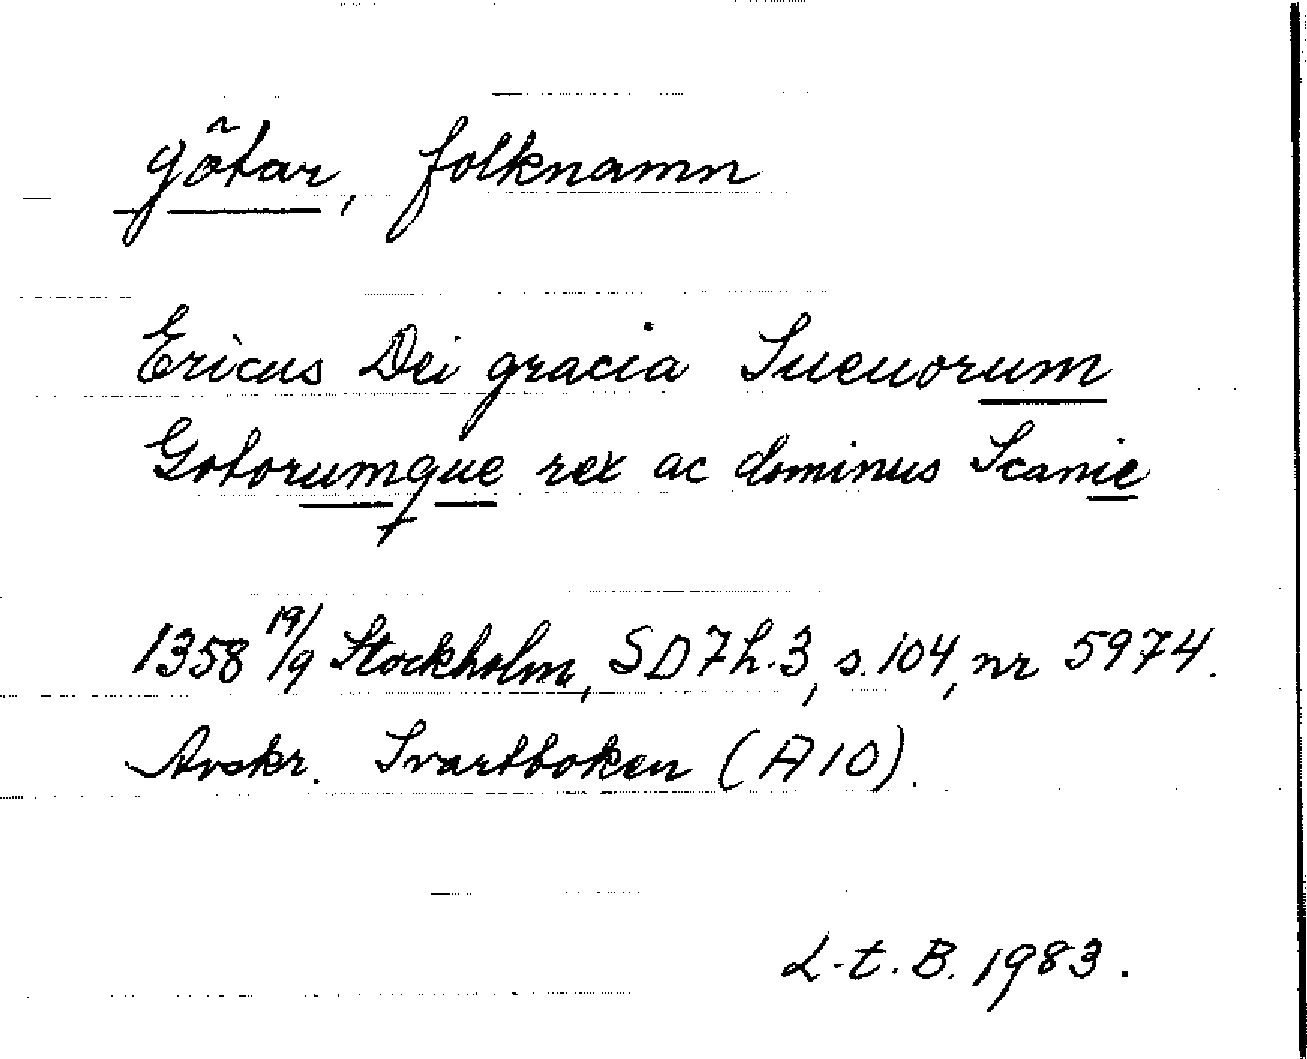 götar, folknamn
Ericus Dei gracia Sueuorum
Gotorumque rex ac dominus Scanie
1358 19/9 Stockholm, SD 7 h. 3, s. 104, nr 5974.
Avskr. Svartboken (A 10).
L-t. B. 1983.